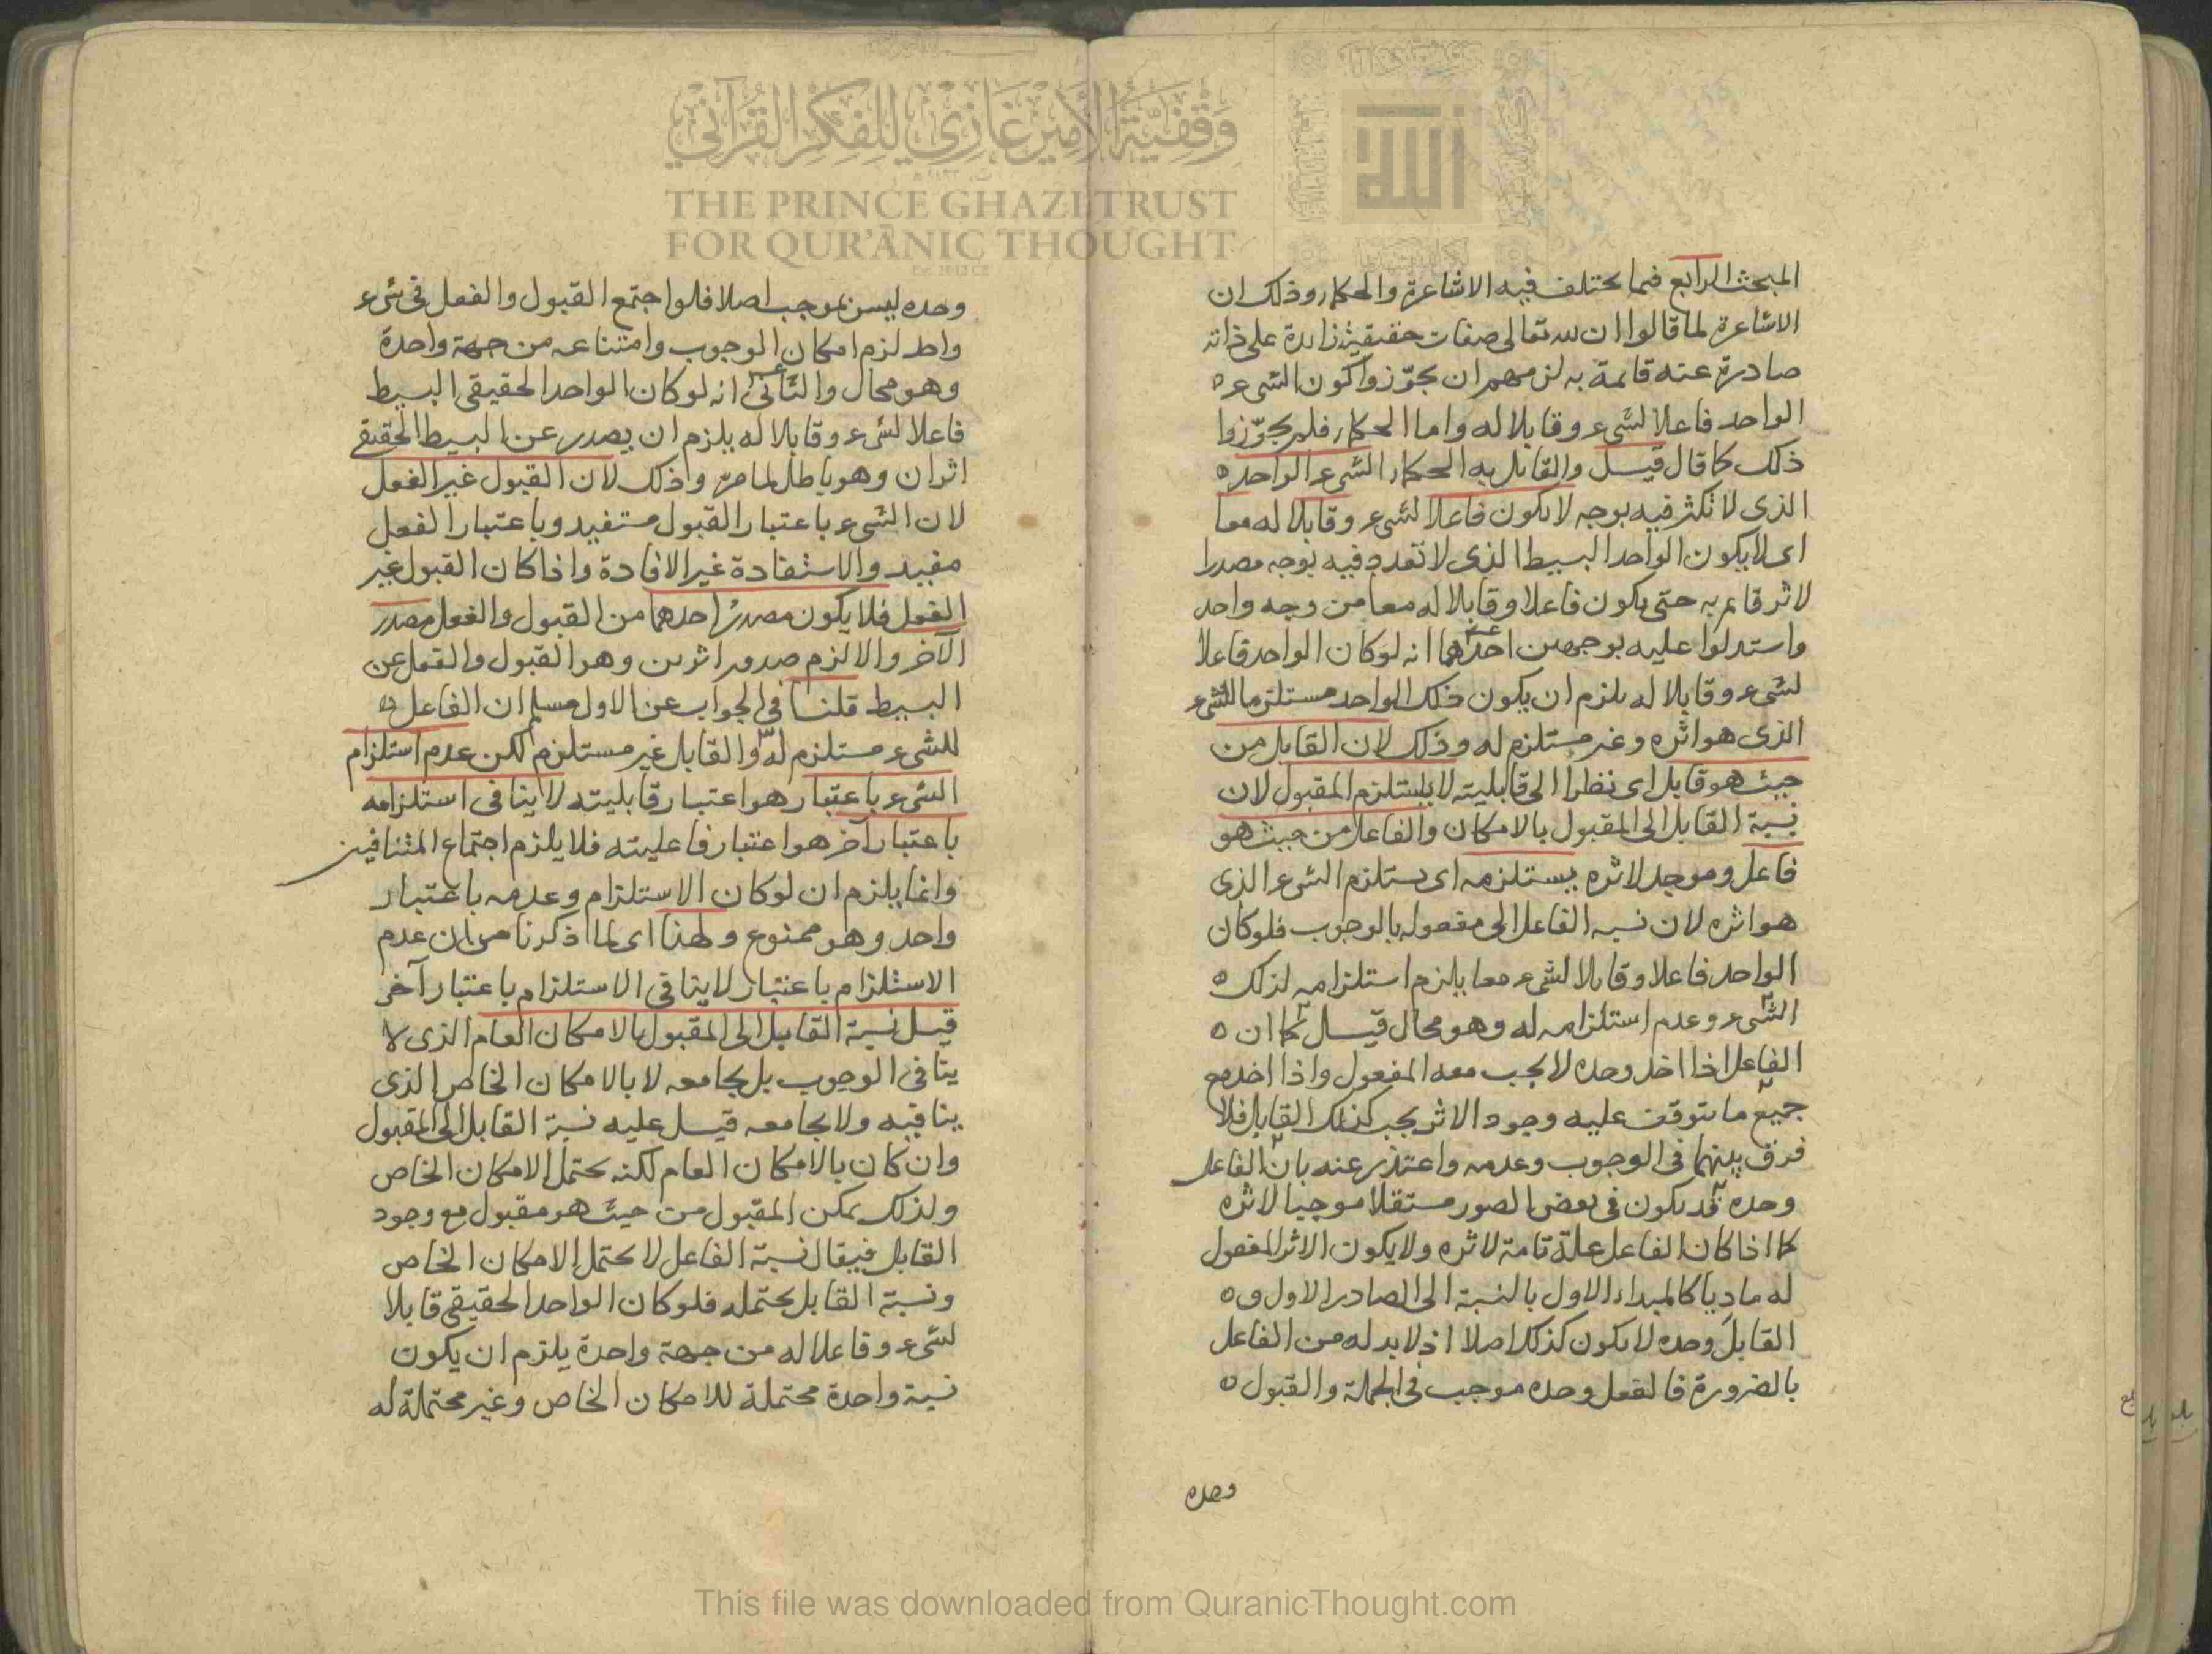 المبحث الرابع فيما يختلف فيه الاشاعرة والحكماء وذلك ان
الاشاعرة لما قالوا ان لله تعالى صفات حقيقية زايدة على ذاته
صادرة عنه قائمة به لزمهم ان يجوّزوا كون الشىء
الواحد فاعلا لشىء وقابلا له واما الحكماء فلم يجوّزوا
ذلك كما قال قيل والقائل به الحكماء الشىء الواحد
الذى لا تكثر فيه بوجه لا يكون فاعلا لشىء وقابلا له معا
اى لا يكون الواحد البسيط الذى لا تعدد فيه بوجه مصدرا
لاثر قائم به حتى يكون فاعلا وقابلا له معا من وجه واحد
واستدلوا عليه بوجهين احدهما انه لو كان الواحد فاعلا
لشىء وقابلا له يلزم ان يكون ذلك الواحد مستلزما للشىء
الذى هو اثره وغير مستلزم له وذلك لان القابل من
حيث هو قابل اى نظرا الى قابليته لا يستلزم المقبول لان
نسبة القابل الى المقبول بالامكان والفاعل من حيث هو
فاعل وموجد لاثره يستلزمه اى يستلزم الشىء الذى
هو اثره لان نسبه الفاعل الى مفعوله بالوجوب فلو كان
الواحد فاعلا وقابلا لشىء معا يلزم استلزامه لذلك
الشىء وعدم استلزامه له وهو محال قيل كما ان
الفاعل اذا اخذ وحده لا يجب معه المفعول واذا اخذ مع
جميع ما يتوقف عليه وجود الاثر يجب كذلك القابل فلا
فرق بينهما فى الوجوب وعدمه واعتذر عنه بان الفاعل
وحده قد يكون فى بعض الصور مستقلا موجبا لاثره
كما اذا كان الفاعل علة تامة لاثره ولا يكون الاثر المفعول
له ماديا كالمبداء الاول بالنسبة الى الصادر الاول و
القابل وحده لا يكون كذلك اصلا اذ لا بد له من الفاعل
بالضرورة فالفعل وحده موجب فى الجملة والقبول
وحده
وحده ليس بموجب اصلا فلو اجتمع القبول والفعل فى شىء
واحد لزم امكان الوجوب وامتناعه من جهة واحدة
وهو محال والثانى انه لو كان الواحد الحقيقى البسيط
فاعلا لشىء وقابلا له يلزم ان يصدر عن البسيط الحقيقى
اثران وهو باطل لما مر وذلك لان القبول غير الفعل
لان الشىء باعتبار القبول مستفيد وباعتبار الفعل
مفيد والاستفادة غير الافادة واذا كان القبول غير
الفعل فلا يكون مصدر احدهما من القبول والفعل مصدر
الآخر والا لزم صدور اثرين وهو القبول والفعل عن
البسيط قلنا فى الجواب عن الاول مسلم ان الفاعل
للشىء مستلزم له والقابل غير مستلزم لكن عدم استلزام
الشىء باعتبار هو اعتبار قابليته لا ينافى استلزامه
باعتبار آخر هو اعتبار فاعليته فلا يلزم اجتماع المتنافيين
وانما يلزم ان لو كان الاستلزام وعدمه باعتبار
واحد وهو ممنوع ولهذا اى لما ذكرنا من ان عدم
الاستلزام باعتبار لا ينافى الاستلزام باعتبار آخر
قيل نسبة القابل الى المقبول بالامكان العام الذى لا
ينافى الوجوب بل يجامعه لا بالامكان الخاص الذى
ينافيه ولا يجامعه قيل عليه نسبة القابل الى المقبول
وان كان بالامكان العام لكنه يحتمل الامكان الخاص
ولذلك يمكن المقبول من حيث هو مقبول مع وجود
القابل فيقال نسبة الفاعل لا يحتمل الامكان الخاص
ونسبة القابل يحتمله فلو كان الواحد الحقيقى قابلا
لشىء وفاعلا له من جهة واحدة يلزم ان يكون
نسبة واحدة محتملة للامكان الخاص وغير محتملة له
وقفية الأمير غازي للفكر القرآني
THE PRINCE GHAZI TRUST
FOR QUR'ĀNIC THOUGHT
الله
This file was downloaded from QuranicThought.com